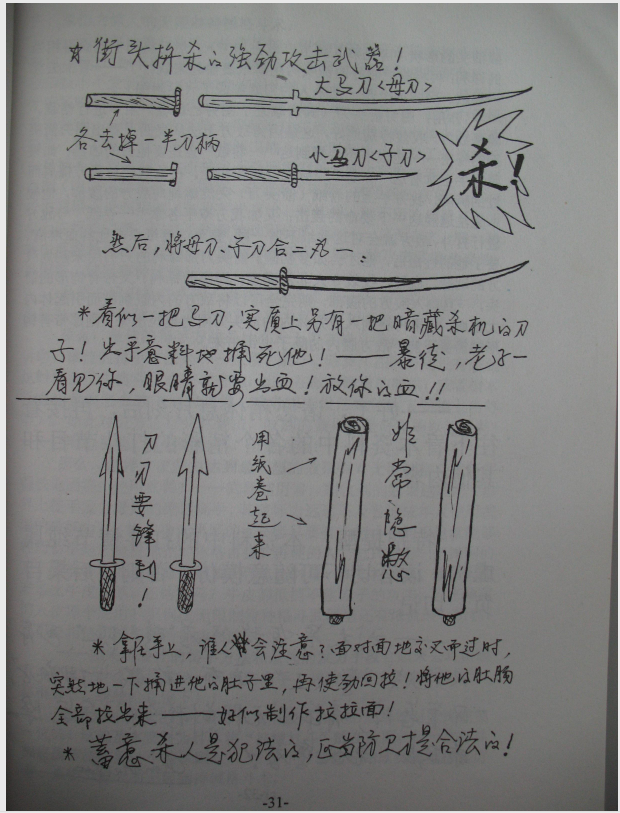 ☆街头拚杀的强劲攻击武器!
大马刀<母刀>
各去掉一半刀柄
小马刀<子刀>
杀!
然后,将母刀、子刀合二为一:
*看似一把马刀,实质上另有一把暗藏杀机的刀
子!出乎意料地捅死他!——暴徒,老子一
看见你,眼睛就要出血!放你的血!!
刀刃要锋利!
用纸卷起来
非常隐憋
*拿在手上,谁人会注意?面对面地交叉而过时,
突然地一下捅进他的肚子里,再使劲回拉!将他的肚肠
全部拉出来——好似制作拉拉面!
*蓄意杀人是犯法的,正当防卫才是合法的!
-31-